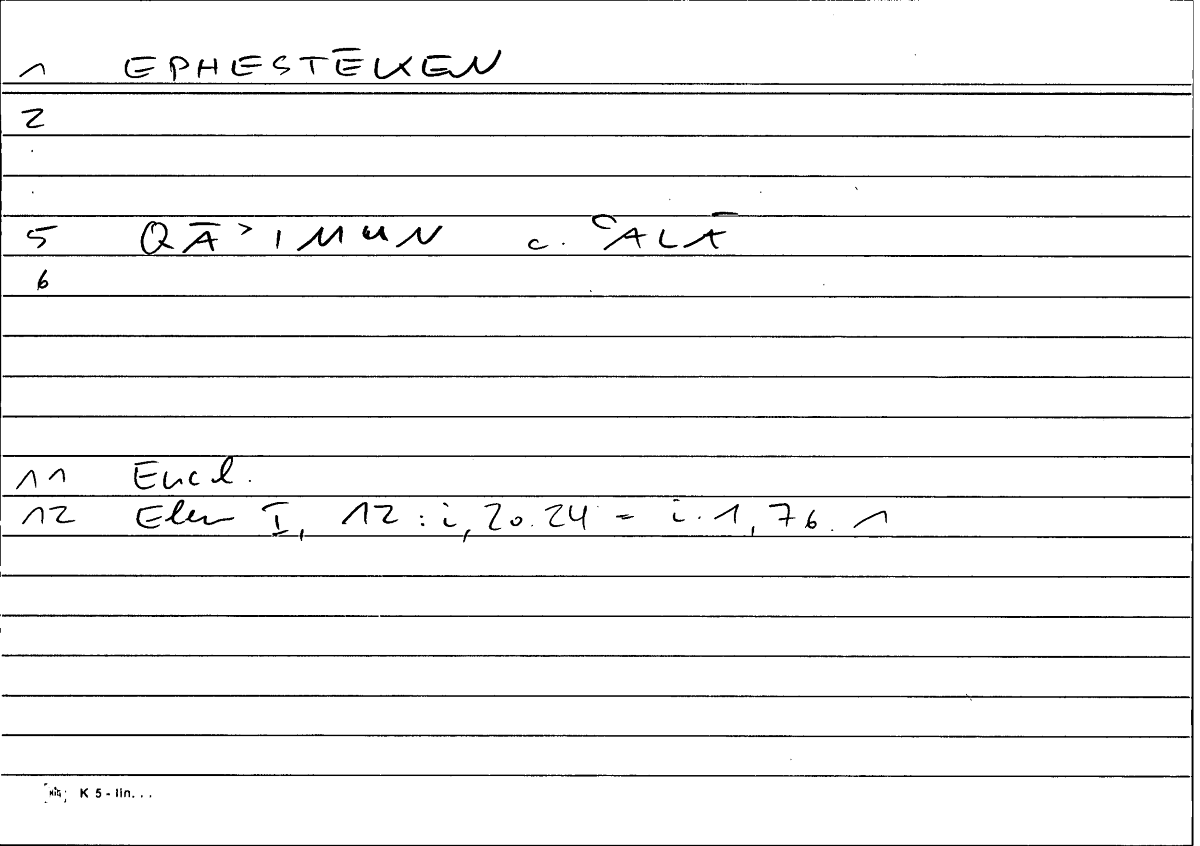 1 EPHESTĒKEN
2
.
.
5 QĀʾIMUN c. ʿALĀ
6
11 Eucl.
12 Elem I, 12 : i, 20.24 = i.1, 76. 1
K 5 - lin. . .